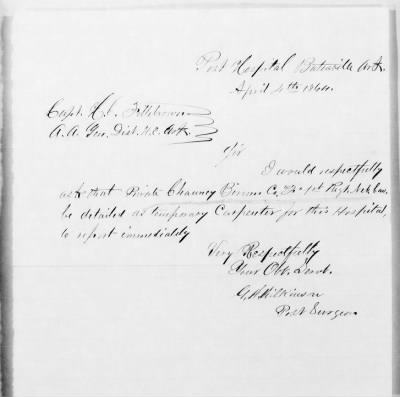 Post Hospital Batesville Ark.
April 4th 1864.
Capt. H. C. Fillebrown
A. A. Gen. Dist. N.E. Ark.
Sir
I would respectfully
ask that Private Chauncy Co. 1st Regt. Neb. Cav.
be detailed as temporary Carpenter for this Hospital,
to report immediately
Very Respectfully
Your Obt. Servt.
G. A. Wilkinson
Post Surgeon